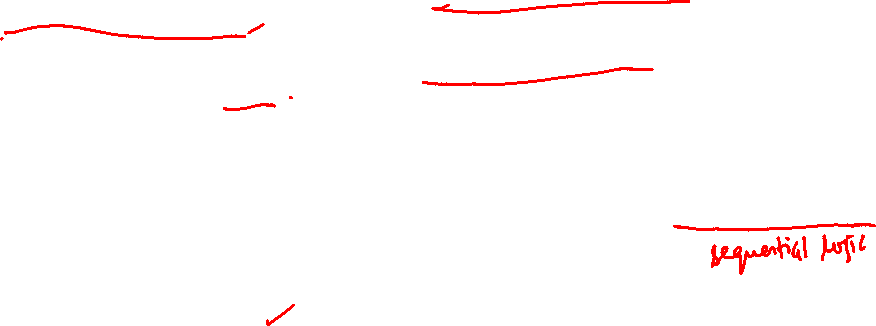 sequential logic